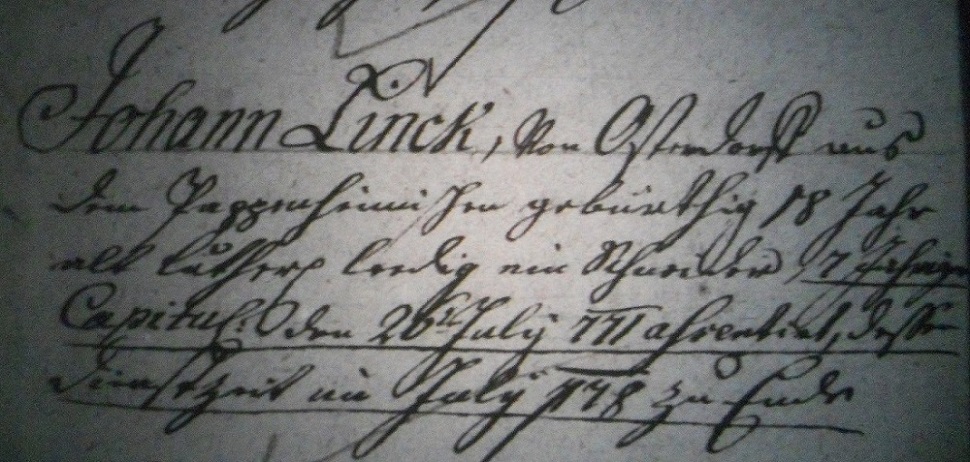 Johann Linck, von Osterdorff aus
dem Pappenheimischen gebürthig 18 Jahr
alt luther. leedig ein Schneider 7 Jährige
Capitul: den 26t July 771 assentirt, dessen
Dienstzeit im July 778 zu Ende